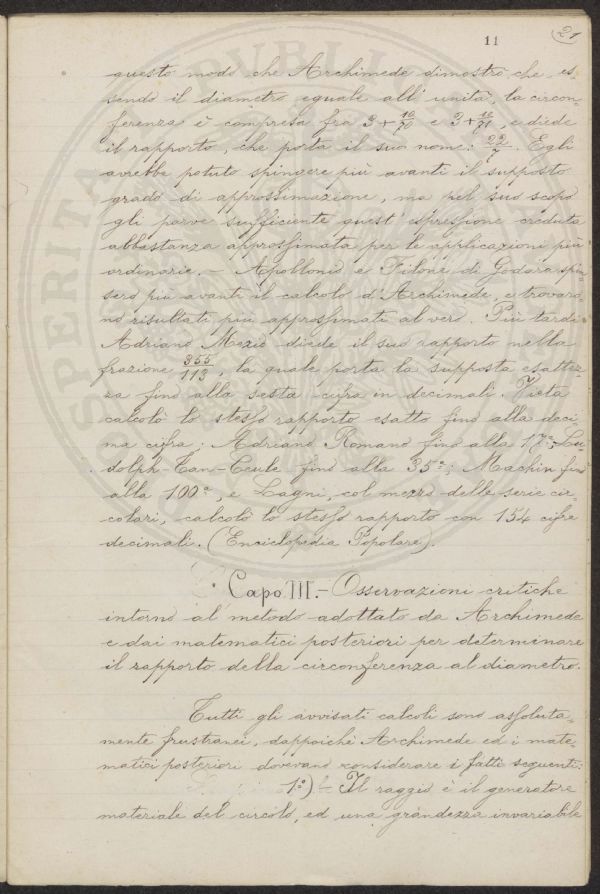 11
21
questo modo che Archimede dimostrò che, es-
sendo il diametro eguale all'unità, la circon-
ferenza è compresa fra 3 + 10/70 e 3 + 10/71, e diede
il rapporto, che porta il suo nome: 22/7. Egli
avrebbe potuto spingere più avanti il supposto
grado di approssimazione, ma pel suo scopo
gli parve sufficiente quest'espressione creduta
abbastanza approssimata per le applicazioni più
ordinarie. - Apollonio e Filone di Godare spin-
sero più avanti il calcolo d'Archimede, e trovaro-
no risultati più approssimati al vero. Più tardi
Adriano Mezio diede il suo rapporto nella
frazione 355/113, la quale porta la supposta esattez-
za fino alla sesta cifra in decimali. Vieta
calcolò lo stesso rapporto esatto fino alla deci-
ma cifra; Adriano Romano fino alla 17ª; Lu-
dolph-Van-Ceule fino alla 35ª; Machin fino
alla 100ª, e Lagni, col mezzo delle serie cir-
colari, calcolò lo stesso rapporto con 154 cifre
decimali. (Enciclopedia Popolare).
Capo III. - Osservazioni critiche
intorno al metodo adottato da Archimede
e dai matematici posteriori per determinare
il rapporto della circonferenza al diametro.
Tutti gli avvisati calcoli sono assoluta-
mente frustranei, dappoichè Archimede ed i mate-
matici posteriori dovevano considerare i fatti seguenti:
1º) - Il raggio è il generatore
materiale del circolo, ed una grandezza invariabile